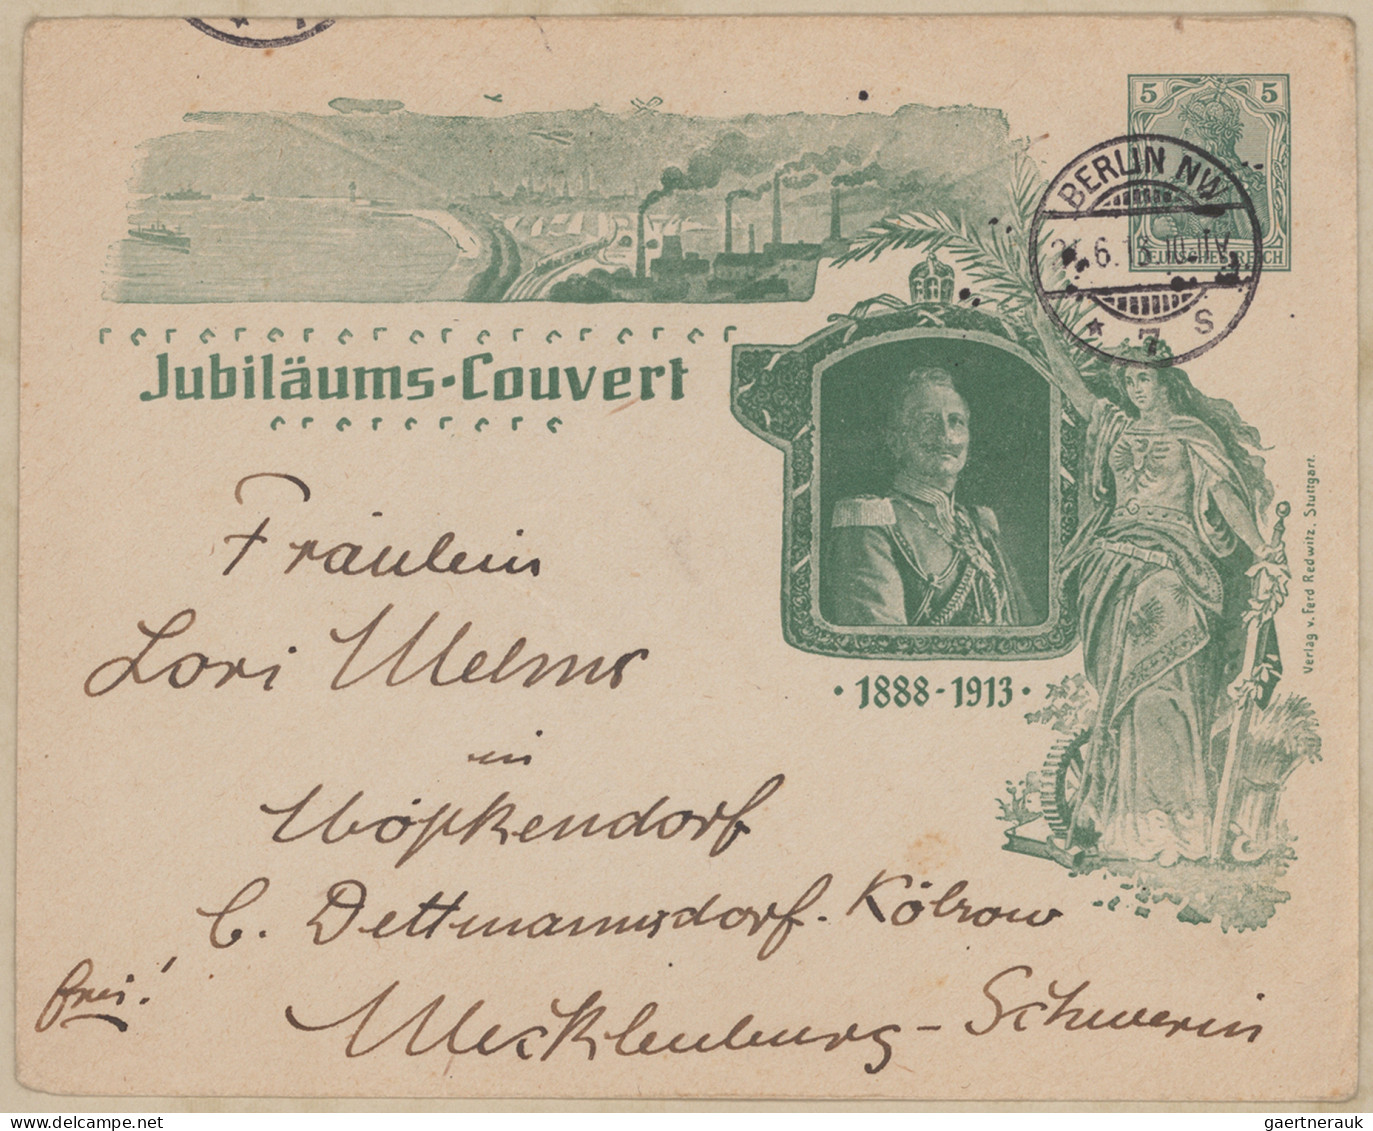 5 5
DEUTSCHES REICH
BERLIN NW
.6.13. 10-11V
* 7 S
Jubiläums-Couvert
· 1888-1913 ·
Verlag v. Ferd Redwitz, Stuttgart.
Fräulein
Lori Melms
in
Wöpkendorf
b. Dettmannsdorf-Kölzow
frei!
Mecklenburg-Schwerin
gaertnerauk